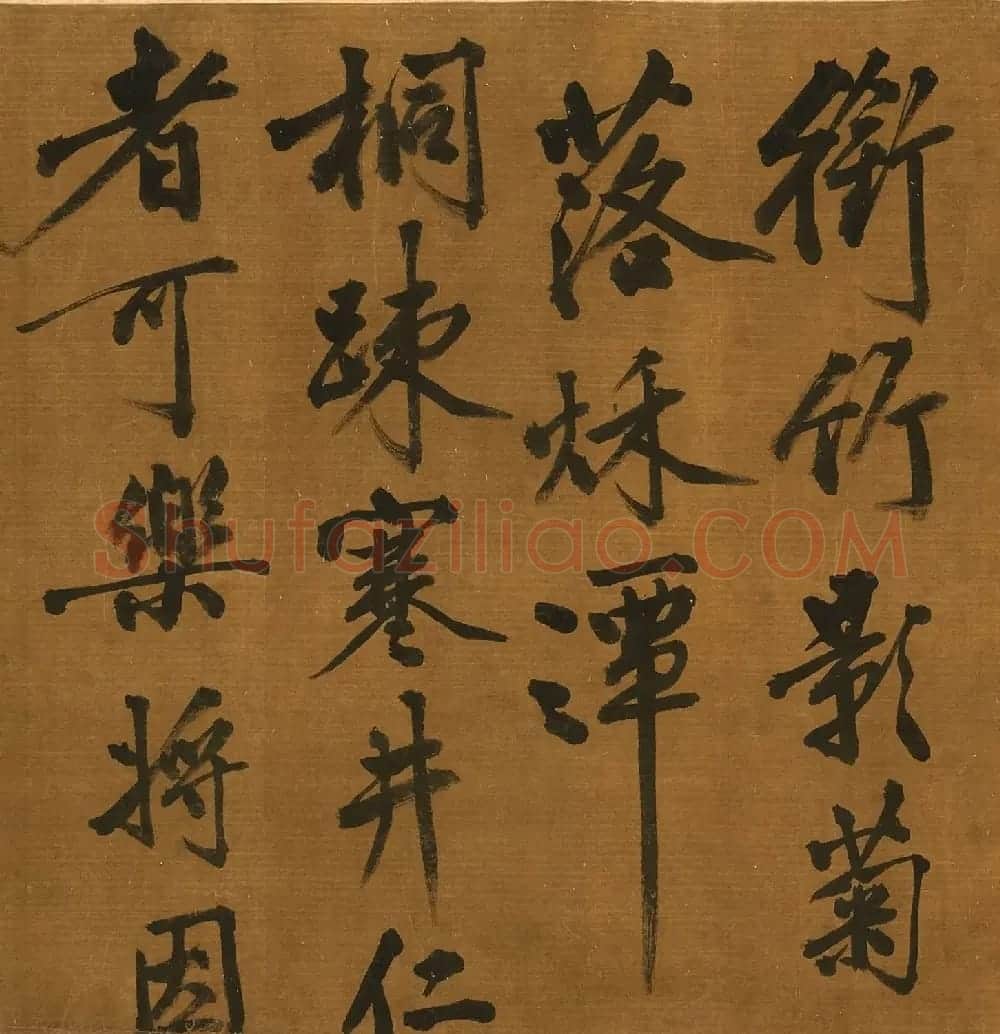 銜竹影菊
落秌潭
桐踈寒井仁
者可樂將因
Shufaziliao.COM